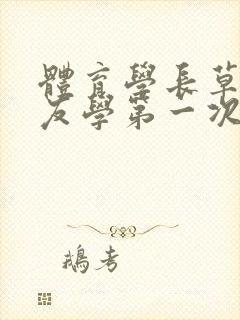 體育學長草
友學第一次
鵝考